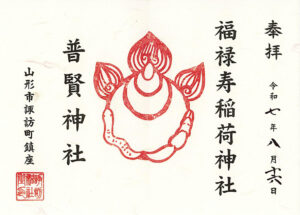 奉拝
令和七年八月十六日
福禄寿稲荷神社
普賢神社
山形市諏訪町鎮座